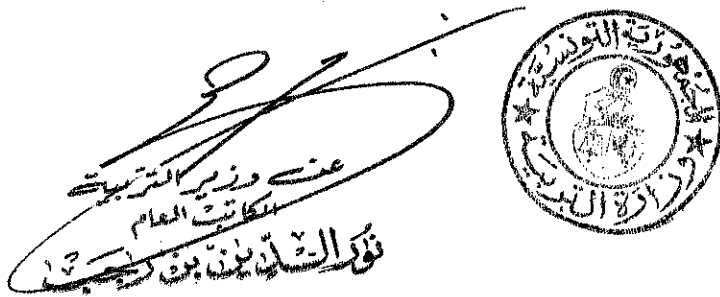 الجمهورية التونسية
وزارة التربية
عن وزير التربية
الكاتب العام
نور الدين بن رجب